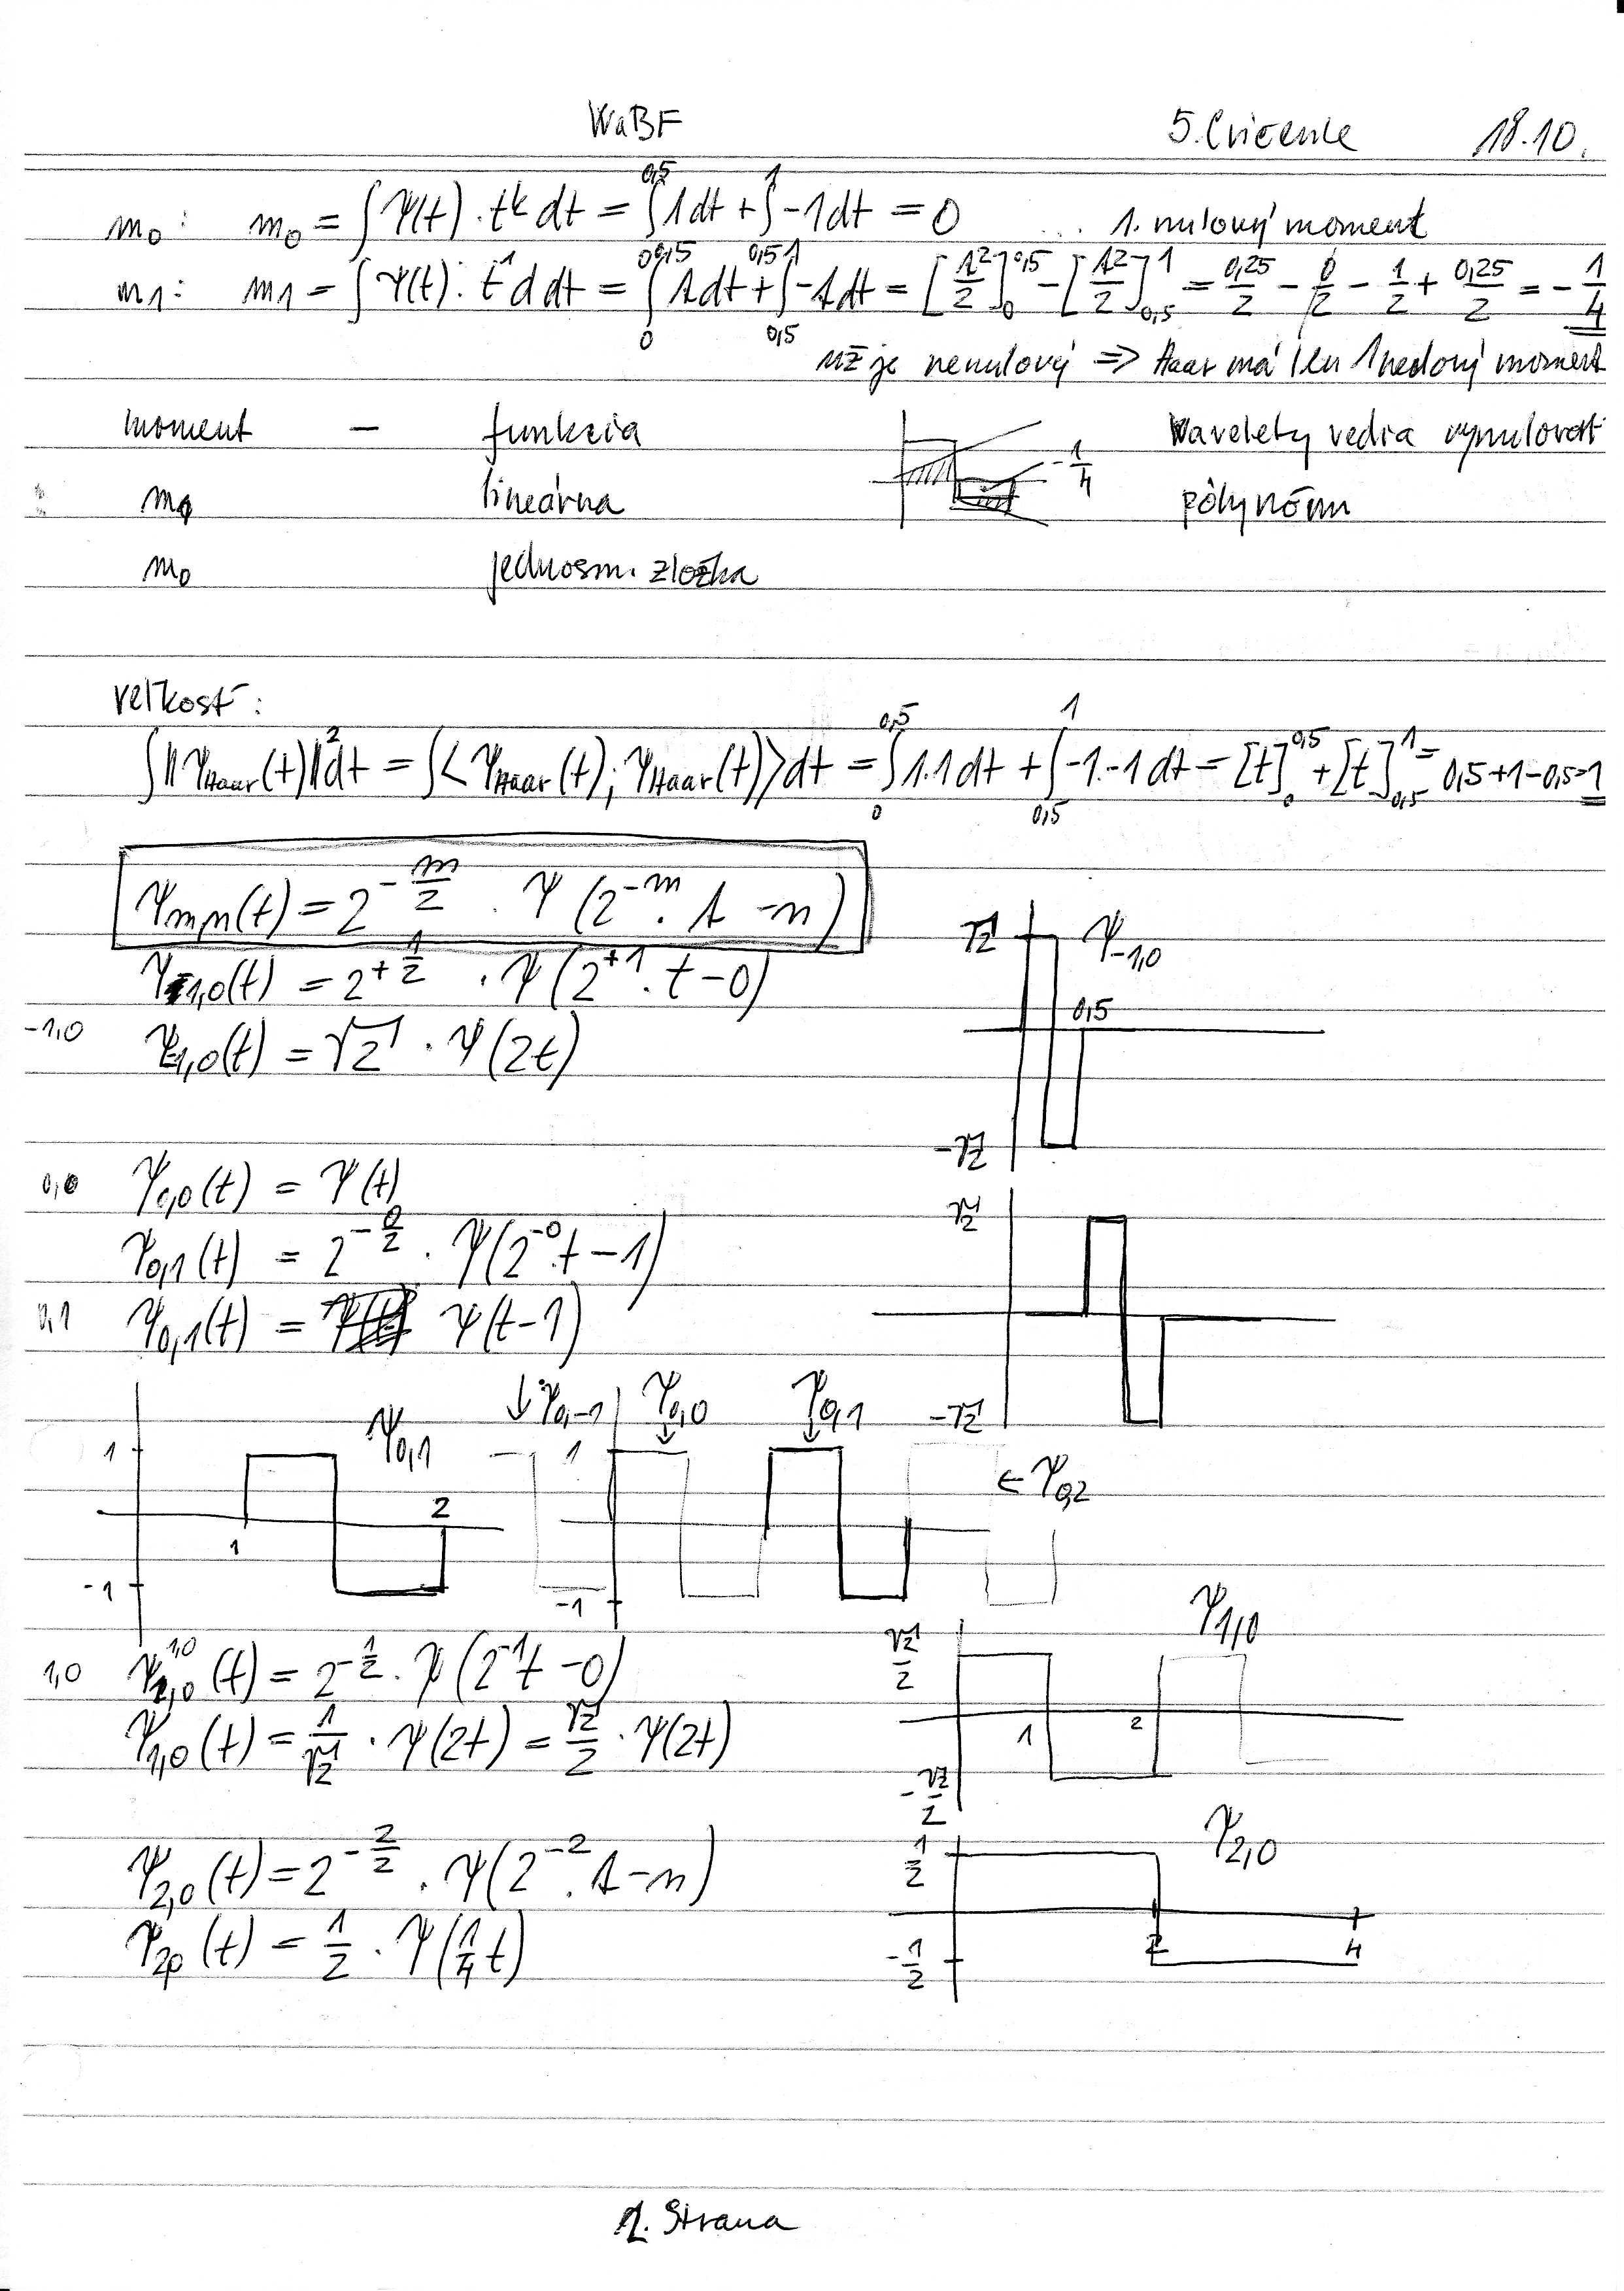 WaBF 5. Cvičenie 18.10.
m₀: m₀ = ∫ Ψ(t) · tᵏ dt = ∫₀^0,5 1 dt + ∫_0,5^1 -1 dt = 0 ... 1. nulový moment
m1: m1 = ∫ Ψ(t) · t¹ d dt = ∫₀^0,5 t dt + ∫_0,5^1 -t dt = [t²/2]₀^0,5 - [t²/2]_0,5^1 = 0,25/2 - 0/2 - 1/2 + 0,25/2 = -1/4
už je nenulový => Haar má len 1 nulový moment
moment - funkcia Wavelety vedia vynulovať
m₁ lineárna -1/4 polynóm
m₀ jednosm. zložka
veľkosť:
∫‖Ψ_Haar(t)‖² dt = ∫<Ψ_Haar(t); Ψ_Haar(t)> dt = ∫₀^0,5 1.1 dt + ∫_0,5^1 -1.-1 dt = [t]₀^0,5 + [t]_0,5^1 = 0,5+1-0,5=1
Ψm,n(t) = 2^(-m/2) · Ψ(2^(-m) · t - n)
Ψ-1,0(t) = 2^(+1/2) · Ψ(2^(+1) · t - 0)
-1,0 Ψ-1,0(t) = √2 · Ψ(2t)
√2 Ψ-1,0
0,5
-√2
0,0 Ψ0,0(t) = Ψ(t)
Ψ0,1(t) = 2^(-0/2) · Ψ(2^(-0) · t - 1)
0,1 Ψ0,1(t) = Ψ(t-1)
√2
-√2
1 Ψ0,1 2
1
-1
↓Ψ0,-1 Ψ0,0 Ψ0,1
1 ← Ψ0,2
-1
1,0 Ψ1,0(t) = 2^(-1/2) · Ψ(2^(-1)t - 0)
Ψ1,0(t) = 1/√2 · Ψ(2t) = √2/2 · Ψ(2t)
√2/2 Ψ1,0
1 2
-√2/2
Ψ2,0(t) = 2^(-2/2) · Ψ(2^(-2) · t - n)
Ψ2,0(t) = 1/2 · Ψ(1/4 t)
1/2 Ψ2,0
2 4
-1/2
1. Strana